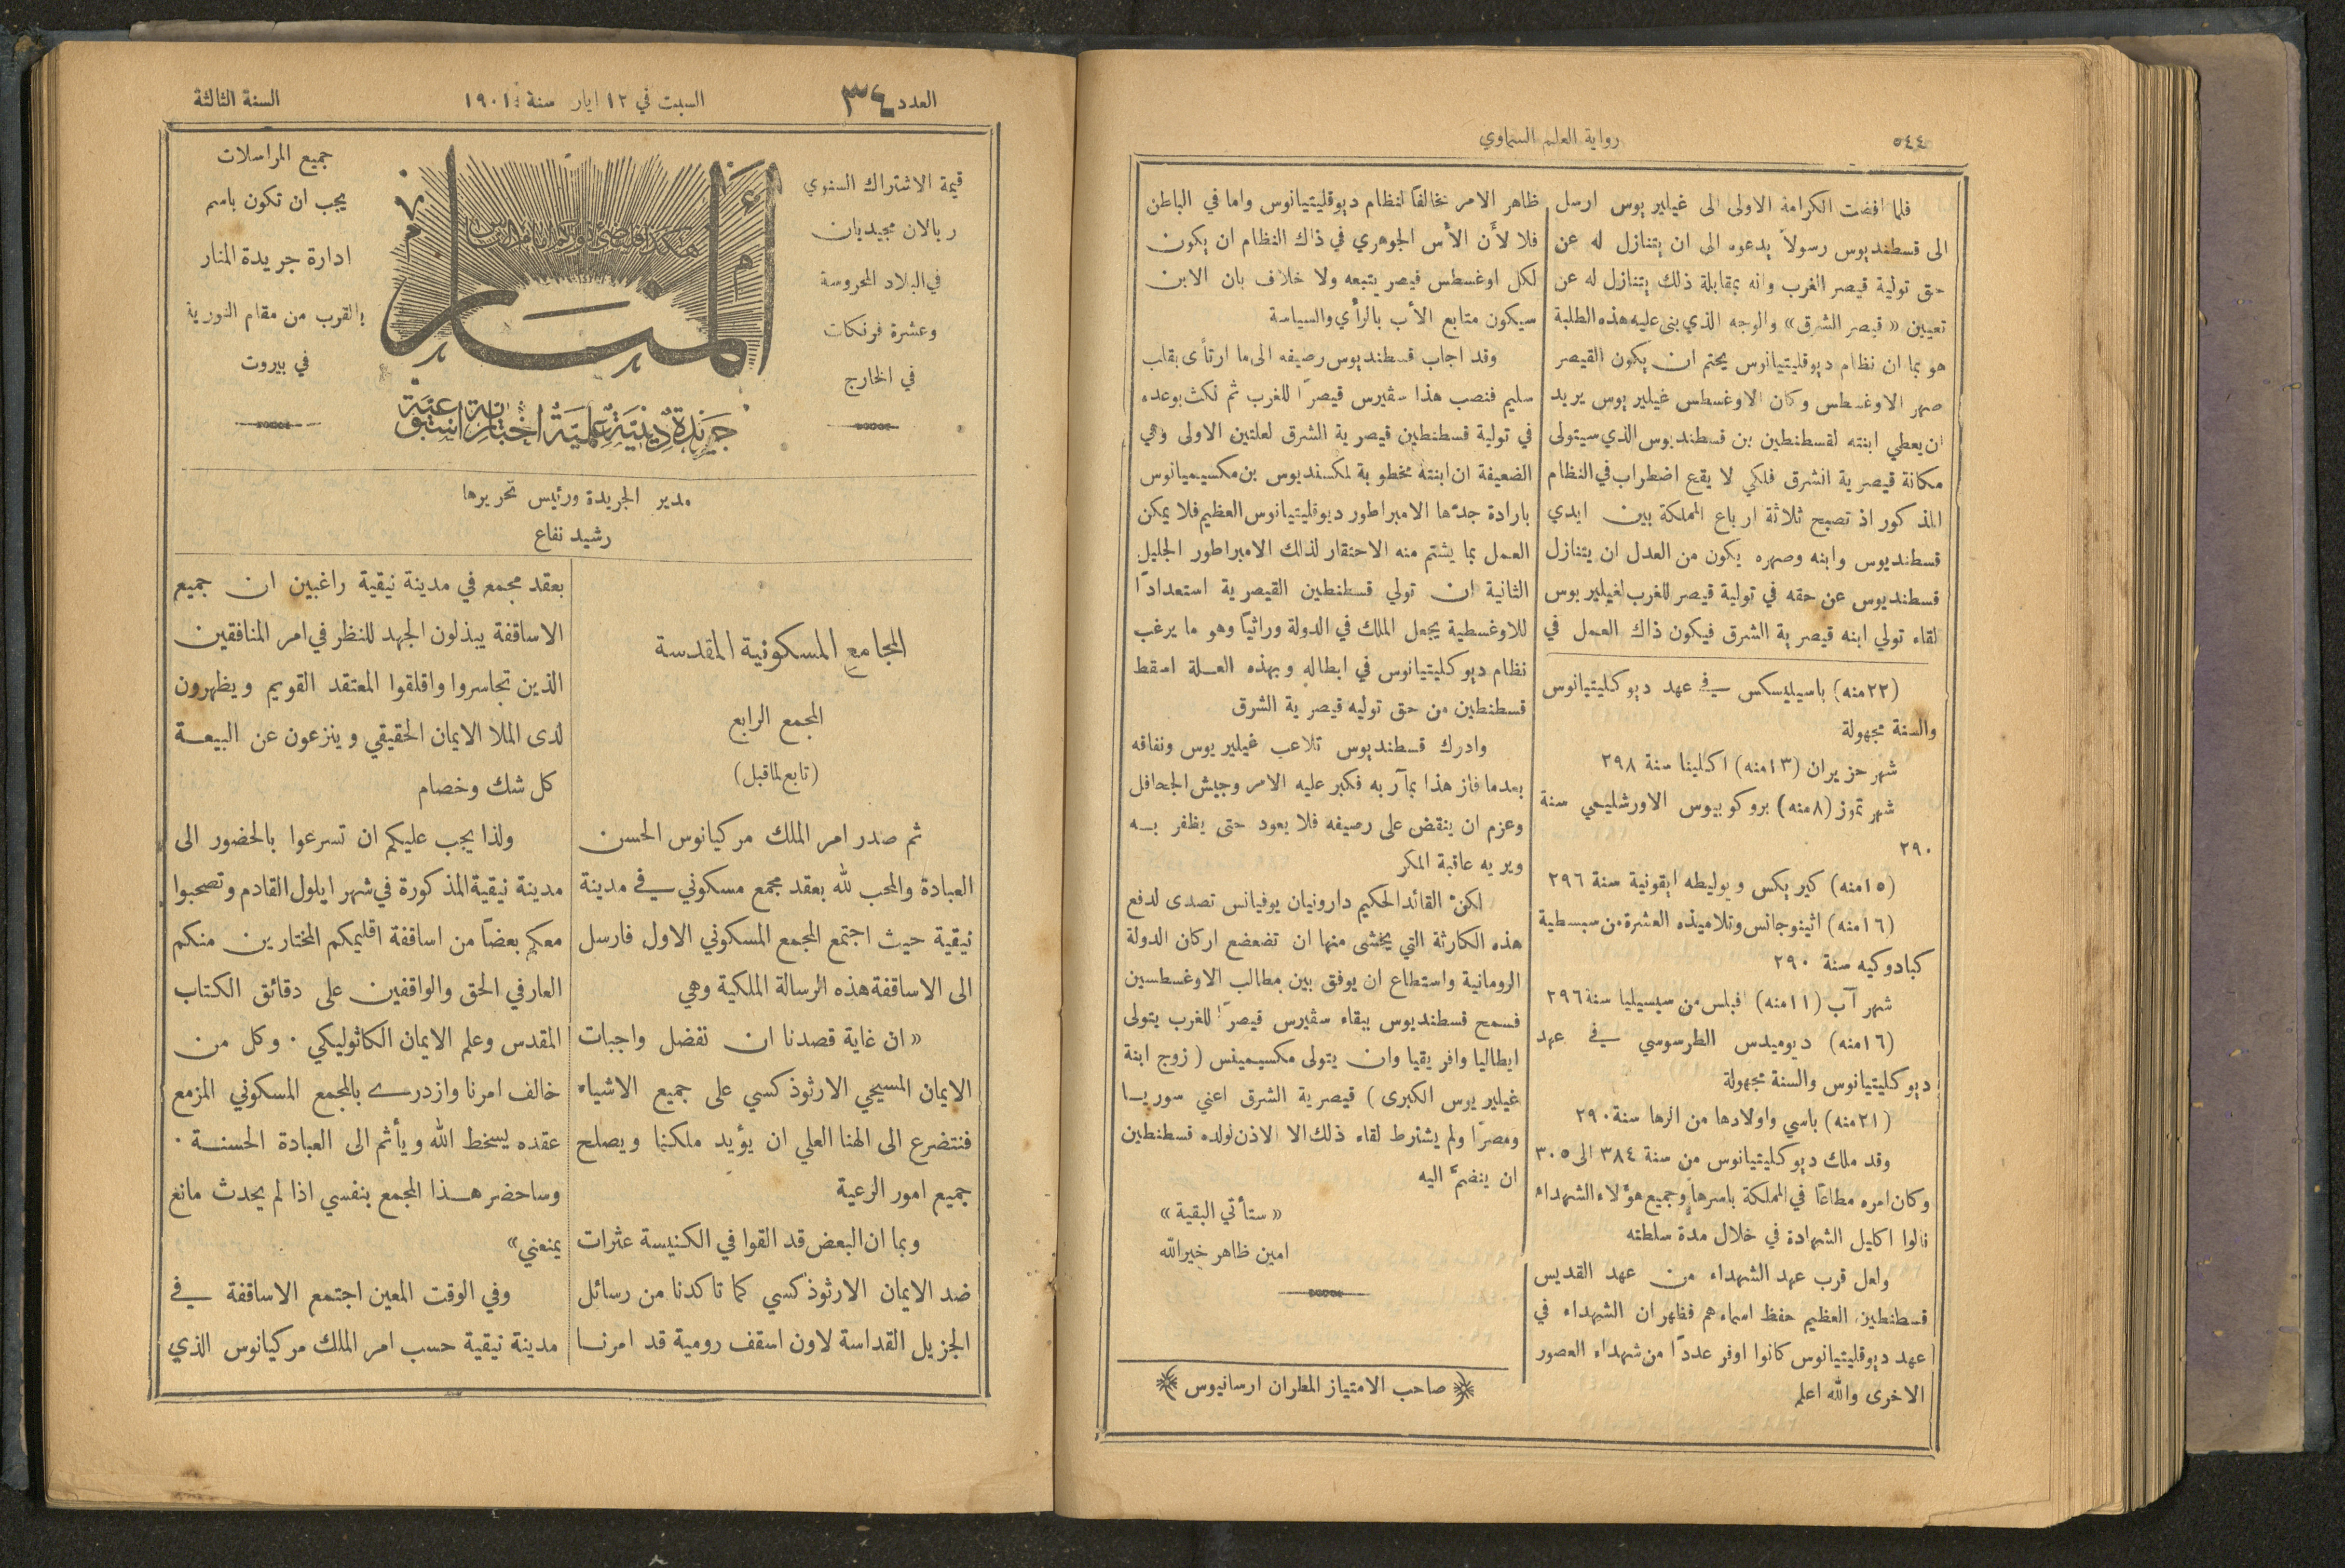 ٥٤٤
رواية العلم السماوي
فلما افضت الكرامة الاولى الى غيليريوس ارسل
الى قسطنديوس رسولاً يدعوه الى ان يتنازل له عن
حق تولية قيصر الغرب وانه بمقابلة ذلك يتنازل له عن
تعيين «قيصر الشرق» والوجه الذي بنى عليه هذه الطلبة
هو بما ان نظام ديوقليتيانوس يحتم ان يكون القيصر
صهر الاوغسطس وكان الاوغسطس غيليريوس يريد
ان يعطي ابنته لقسطنطين بن قسطنديوس الذي سيتولى
مكانة قيصرية الشرق فلكي لا يقع اضطراب في النظام
المذكور اذ تصبح ثلاثة ارباع المملكة بين ايدي
قسطنديوس وابنه وصهره يكون من العدل ان يتنازل
قسطنديوس عن حقه في تولية قيصر للغرب لغيليريوس
لقاء تولي ابنه قيصرية الشرق فيكون ذاك العمل في
(٢٢منه) باسيليسكس في عهد ديوكليتيانوس
والسنة مجهولة
شهر حزيران (١٣منه) اكلينا سنة ٢٩٨
شهر تموز (٨منه) بروكوبيوس الاورشليمي سنة
٢٩٠
(١٥منه) كيريكس ويوليطه ايقونية سنة ٢٩٦
(١٦منه) اثينوجانس وتلاميذه العشرة من سبسطية
كبادوكيه سنة ٢٩٠
شهر آب (١١منه) افبلس من سيسيليا سنة ٢٩٦
(١٦منه) ديوميدس الطرسوسي في عهد
ديوكليتيانوس والسنة مجهولة
(٢١منه) باسي واولادها من الرها سنة ٢٩٠
وقد ملك ديوكليتيانوس من سنة ٣٨٤ الى ٣٠٥
وكان امره مطاعًا في المملكة باسرها وجميع هؤلاء الشهداء
نالوا اكليل الشهادة في خلال مدة سلطته
ولعل قرب عهد الشهداء من عهد القديس
قسطنطين العظيم حفظ اسماءهم فظهر ان الشهداء في
عهد ديوقليتيانوس كانوا اوفر عددًا من شهداء العصور
الاخرى والله اعلم
ظاهر الامر مخالفًا لنظام ديوقليتيانوس واما في الباطن
فلا لأن الأس الجوهري في ذاك النظام ان يكون
لكل اوغسطس قيصر يتبعه ولا خلاف بان الابن
سيكون متابع الأب بالرأي والسياسة
وقد اجاب قسطنديوس رصيفه الى ما ارتأى بقلب
سليم فنصب هذا سڤيرس قيصرًا للغرب ثم نكث بوعده
في تولية قسطنطين قيصرية الشرق لعلتين الاولى وهي
الضعيفة ان ابنته مخطوبة لمكسنديوس بن مكسيميانوس
بارادة جدها الامبراطور ديوقليتيانوس العظيم فلا يمكن
العمل بما يشتم منه الاحتقار لذلك الامبراطور الجليل
الثانية ان تولي قسطنطين القيصرية استعدادًا
للاوغسطية يجعل الملك في الدولة وراثيًا وهو ما يرغب
نظام ديوكليتيانوس في ابطاله وبهذه العلة اسقط
قسطنطين من حق توليه قيصرية الشرق
وادرك قسطنديوس تلاعب غيليريوس ونفاقه
بعدما فاز هذا بمآربه فكبر عليه الامر وجيش الجحافل
وعزم ان ينقض على رصيفه فلا يعود حتى يظفر به
ويريه عاقبة المكر
لكنّ القائد الحكيم دارونيان يوفيانس تصدى لدفع
هذه الكارثة التي يخشى منها ان تضعضع اركان الدولة
الرومانية واستطاع ان يوفق بين مطالب الاوغسطسين
فسمح قسطنديوس ببقاء سڤيرس قيصرًا للغرب يتولى
ايطاليا وافريقيا وان يتولى مكسيمينس (زوج ابنة
غيليريوس الكبرى) قيصرية الشرق اعني سوريا
ومصرًا ولم يشترط لقاء ذلك الا الاذن لولده قسطنطين
ان ينضمّ اليه
«ستأتي البقية»
امين ظاهر خيرالله
صاحب الامتياز المطران ارسانيوس
العدد ٣٤
السبت في ١٢ ايار سنة ١٩٠١
السنة الثالثة
قيمة الاشتراك السنوي
ريالان مجيديان
في البلاد المحروسة
وعشرة فرنكات
في الخارج
هكذا فليضئ نوركم قدام الناس
المنار
جريدة دينية علمية اخبارية اسبوعية
جميع المراسلات
يجب ان تكون باسم
ادارة جريدة المنار
بالقرب من مقام النورية
في بيروت
مدير الجريدة ورئيس تحريرها
رشيد نفاع
المجامع المسكونية المقدسة
المجمع الرابع
(تابع لما قبل)
ثم صدر امر الملك مركيانوس الحسن
العبادة والمحب لله بعقد مجمع مسكوني في مدينة
نيقية حيث اجتمع المجمع المسكوني الاول فارسل
الى الاساقفة هذه الرسالة الملكية وهي
«ان غاية قصدنا ان نفضل واجبات
الايمان المسيحي الارثوذكسي على جميع الاشياء
فنتضرع الى الهنا العلي ان يؤيد ملكنا ويصلح
جميع امور الرعية
وبما ان البعض قد القوا في الكنيسة عثرات
ضد الايمان الارثوذكسي كما تاكدنا من رسائل
الجزيل القداسة لاون اسقف رومية قد امرنا
بعقد مجمع في مدينة نيقية راغبين ان جميع
الاساقفة يبذلون الجهد للنظر في امر المنافقين
الذين تجاسروا واقلقوا المعتقد القويم ويظهرون
لدى الملا الايمان الحقيقي وينزعون عن البيعة
كل شك وخصام
ولذا يجب عليكم ان تسرعوا بالحضور الى
مدينة نيقية المذكورة في شهر ايلول القادم وتصحبوا
معكم بعضًا من اساقفة اقليمكم المختارين منكم
العارفي الحق والواقفين على دقائق الكتاب
المقدس وعلم الايمان الكاثوليكي . وكل من
خالف امرنا وازدرى بالمجمع المسكوني المزمع
عقده يسخط الله ويأثم الى العبادة الحسنة .
وساحضر هذا المجمع بنفسي اذا لم يحدث مانع
يمنعني»
وفي الوقت المعين اجتمع الاساقفة في
مدينة نيقية حسب امر الملك مركيانوس الذي